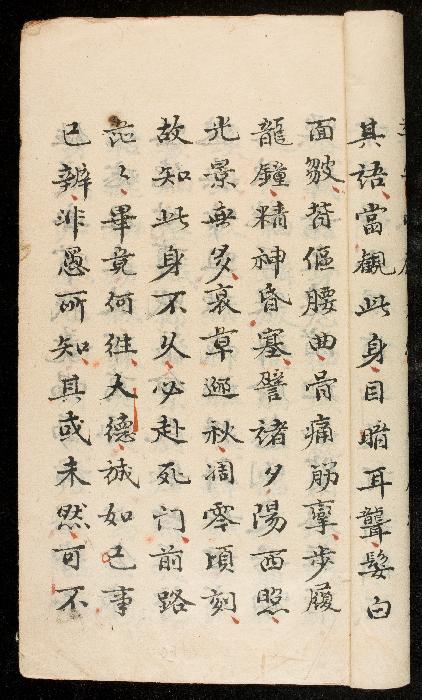 其語當觀此身目暗耳聾髮白
面皺背傴腰曲骨痛筋攣步履
龍鐘精神昏塞譬諸夕陽西照
光景無多衰草逕秋凋零頃刻
故知此身不久必赴死门前路
茫々畢竟何往大德誠如己事
已辨非愚所知其或未然可不